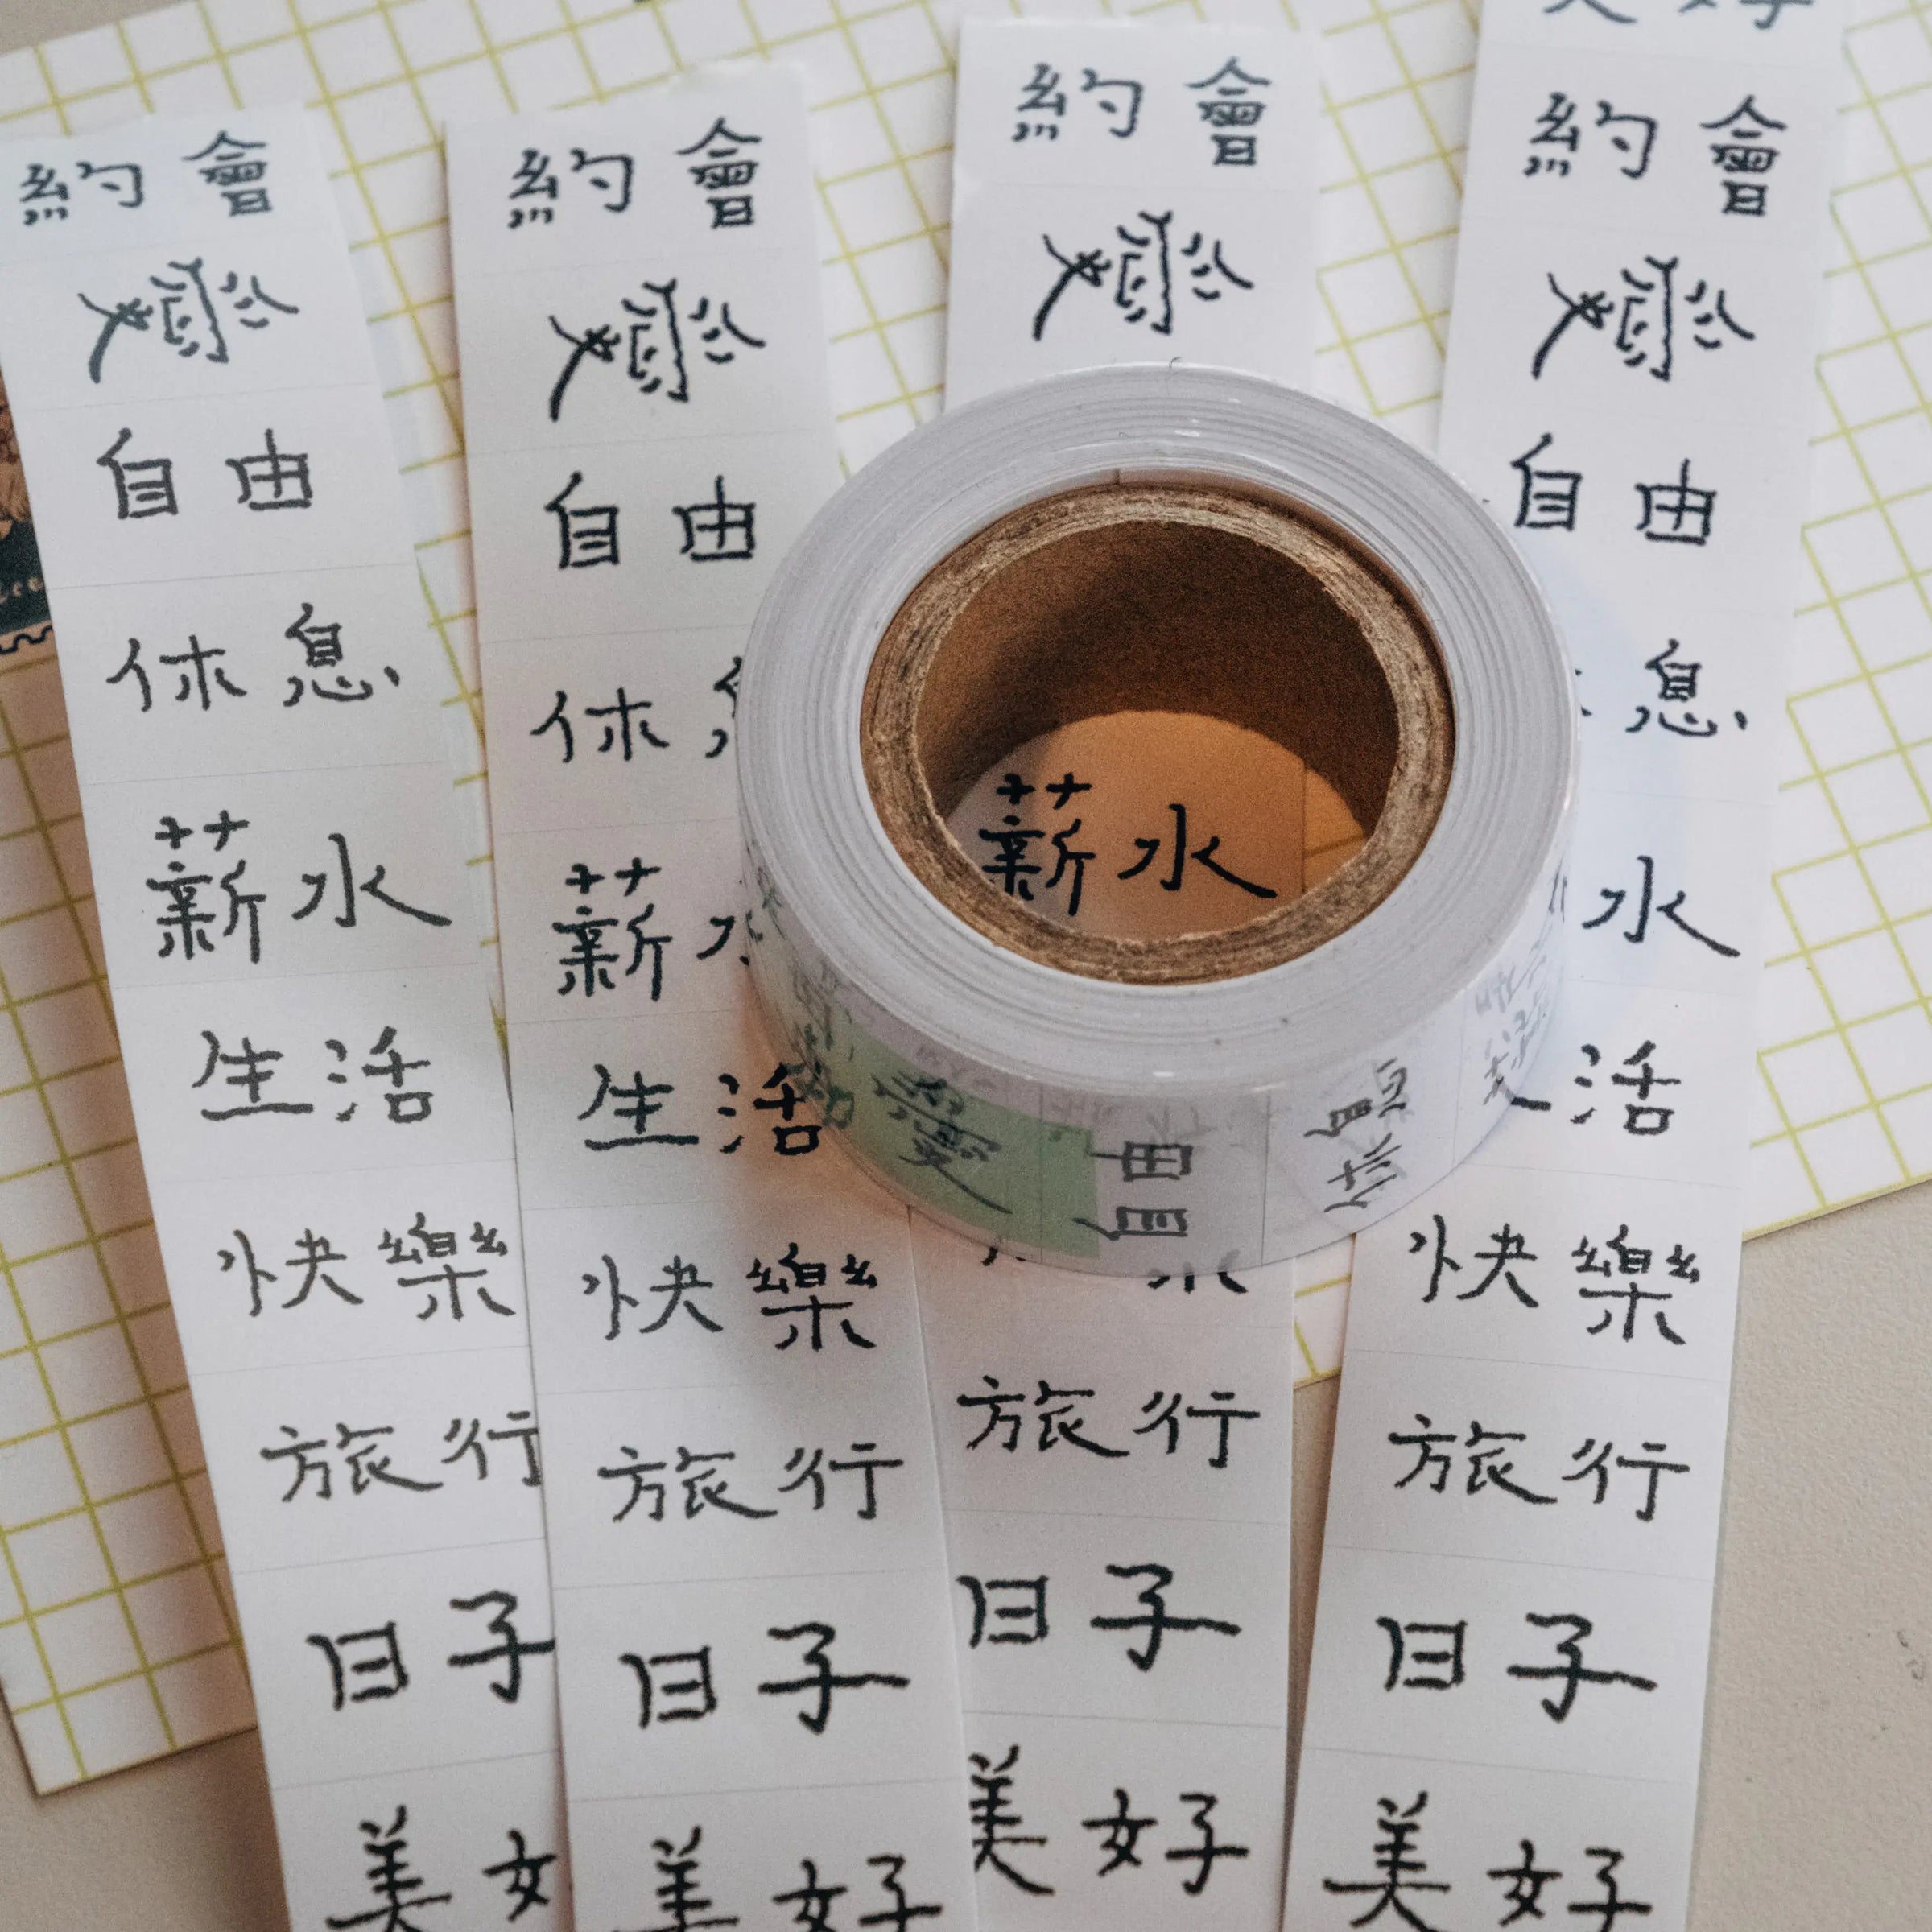 約會
愛
自由
休息
薪水
生活
快樂
旅行
日子
美
約會
愛
自由
休
薪
生活
快樂
旅行
日子
美好
約會
愛
薪水
旅行
日子
美好
約會
愛
自由
息
水
活
快樂
旅行
日子
美好
愛
自由
休息